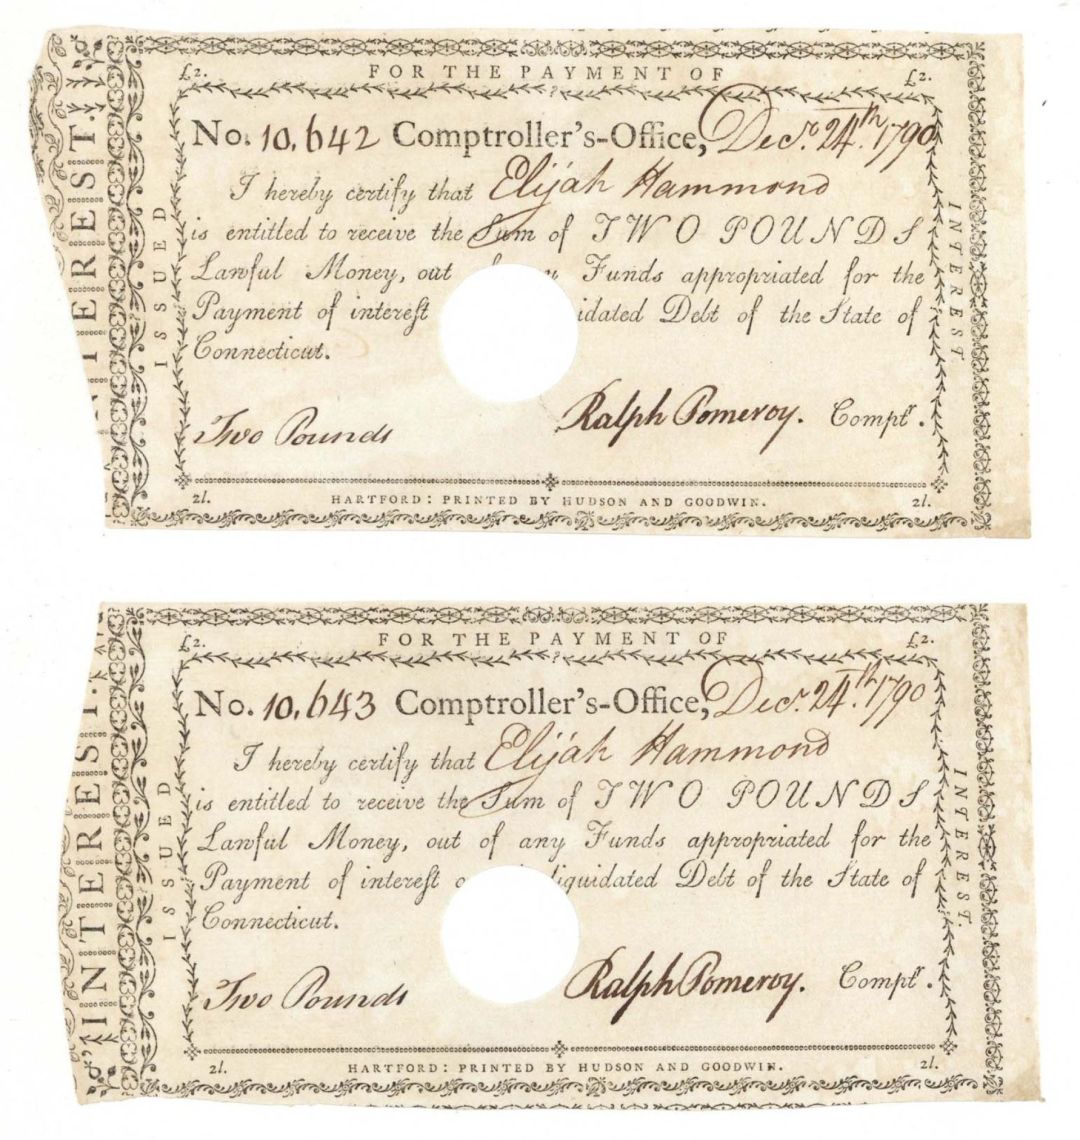 FOR THE PAYMENT OF
£2. £2.
No. 10,642 Comptroller's-Office, Decr. 24th. 1790
I hereby certify that Elijah Hammond
is entitled to receive the Sum of TWO POUNDS
Lawful Money, out Funds appropriated for the
Payment of interest idated Debt of the State of
Connecticut.
Two Pounds Ralph Pomeroy. Comptr.
2l. HARTFORD: PRINTED BY HUDSON AND GOODWIN. 2l.
ISSUED
INTEREST
TEREIST.
FOR THE PAYMENT OF
£2. £2.
No. 10,643 Comptroller's-Office, Decr. 24th. 1790
I hereby certify that Elijah Hammond
is entitled to receive the Sum of TWO POUNDS
Lawful Money, out of any Funds appropriated for the
Payment of interest o liquidated Debt of the State of
Connecticut.
Two Pounds Ralph Pomeroy. Comptr.
2l. HARTFORD: PRINTED BY HUDSON AND GOODWIN. 2l.
ISSUED
INTEREST.
INTEREIST.